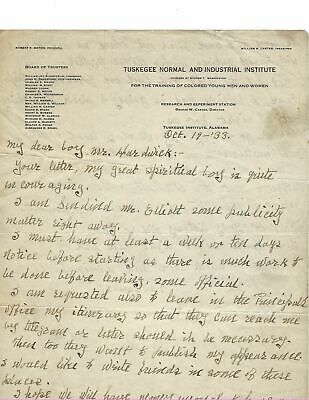 ROBERT R. MOTON, PRINCIPAL
WILLIAM H. CARTER, TREASURER
BOARD OF TRUSTEES
TUSKEGEE NORMAL AND INDUSTRIAL INSTITUTE
FOUNDED BY BOOKER T. WASHINGTON
FOR THE TRAINING OF COLORED YOUNG MEN AND WOMEN
RESEARCH AND EXPERIMENT STATION
GEORGE W. CARVER, DIRECTOR
TUSKEGEE INSTITUTE, ALABAMA
Oct. 19-'33.
My dear boy, Mr. Hardwick:-
Your letter, my great spiritual boy is quite
encouraging.
I am sending Mr. Elliott some publicity
matter right away.
I must have at least a week or ten days
notice before starting as there is much work to
be done before leaving, some official.
I am requested also to leave in the Principal's
office my itinerary so that they can reach me
by telegram or letter should it be necessary.
Then too they want to publish my appearance.
I would like to write friends in some of these
places.
I hope we will have